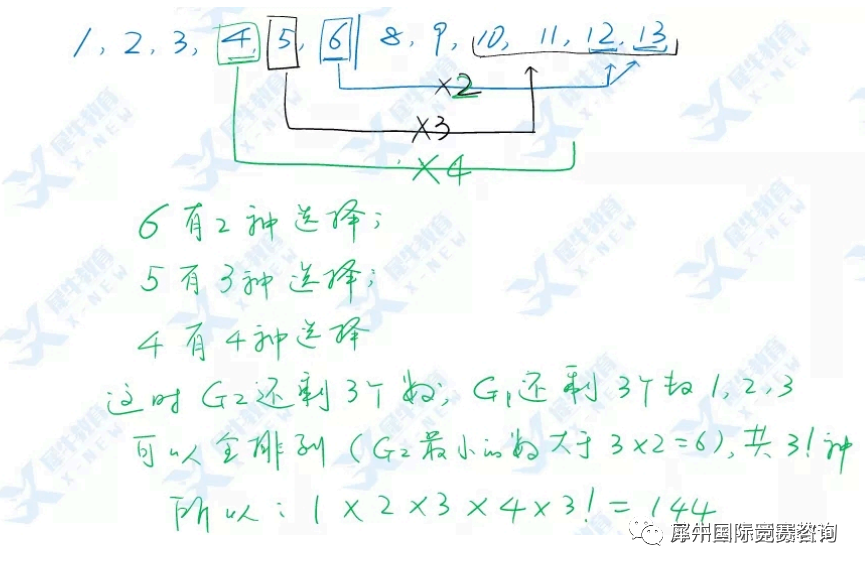 1, 2, 3, 4, 5, 6 | 8, 9, 10, 11, 12, 13
×2
×3
×4
6有2种选择;
5有3种选择;
4有4种选择
这时G2还剩3个数, G1还剩3个数1,2,3
可以全排列(G2最小的数大于3×2=6),共3!种
所以: 1×2×3×4×3! = 144
犀牛国际竞赛咨询
犀牛教育
X-NEW